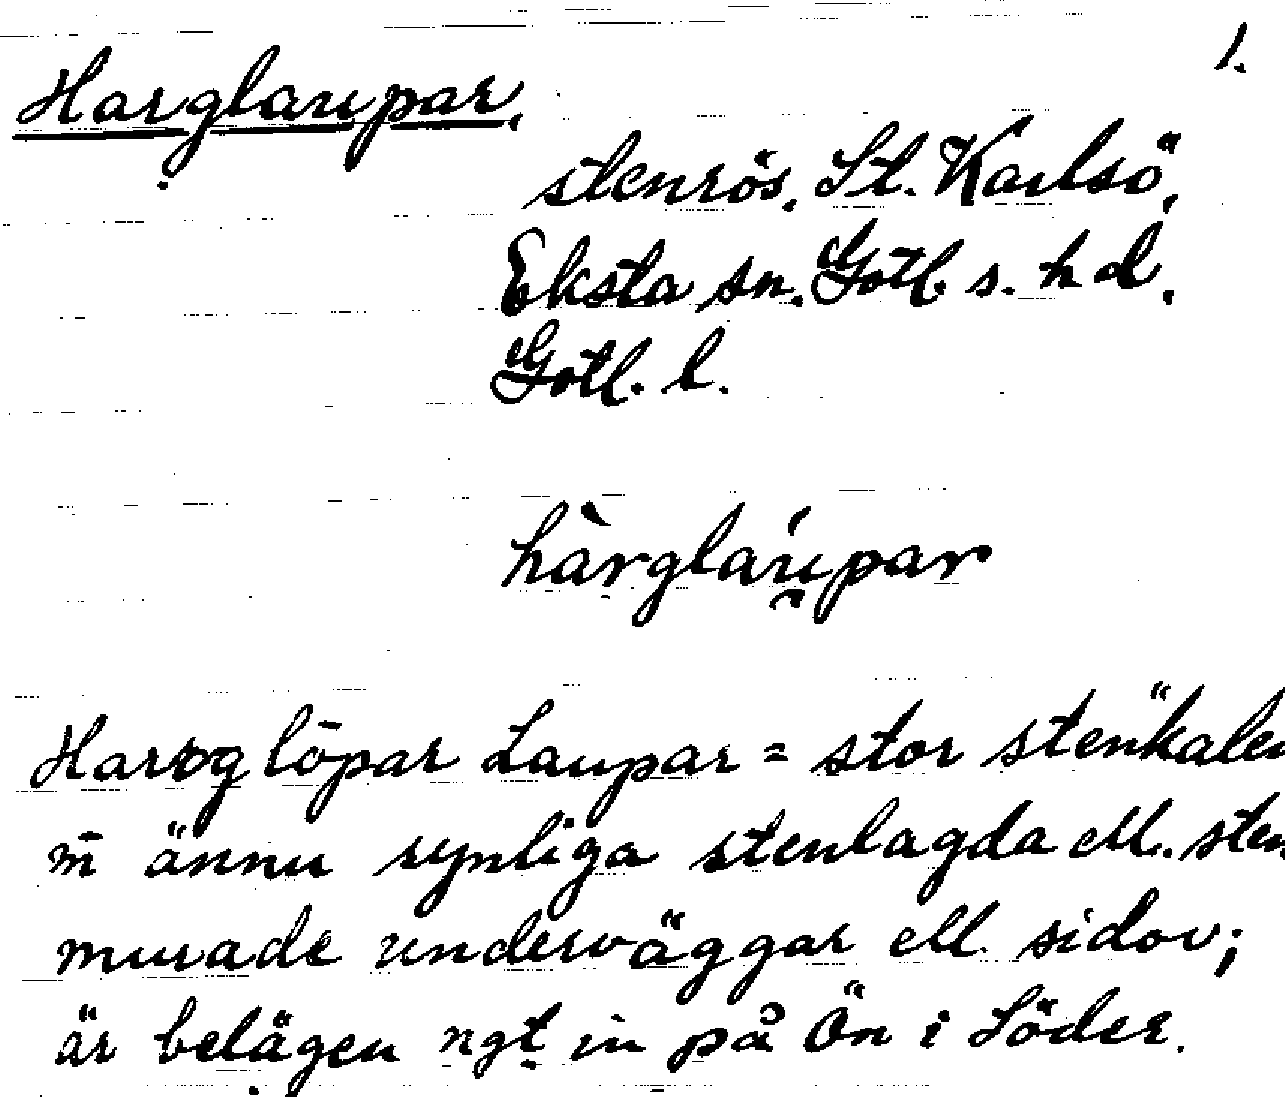 1.
Harglaupar.
stenrös, St. Karlsö,
Eksta sn. Gotl. s. hd.
Gotl. l.
hàrglaú̯par
Haroglöpar Laupar = stor stenkalen
m̄ ännu synliga stenlagda ell. sten
murade underväggar ell. sidov;
är belägen ngt in på Ön i Söder.